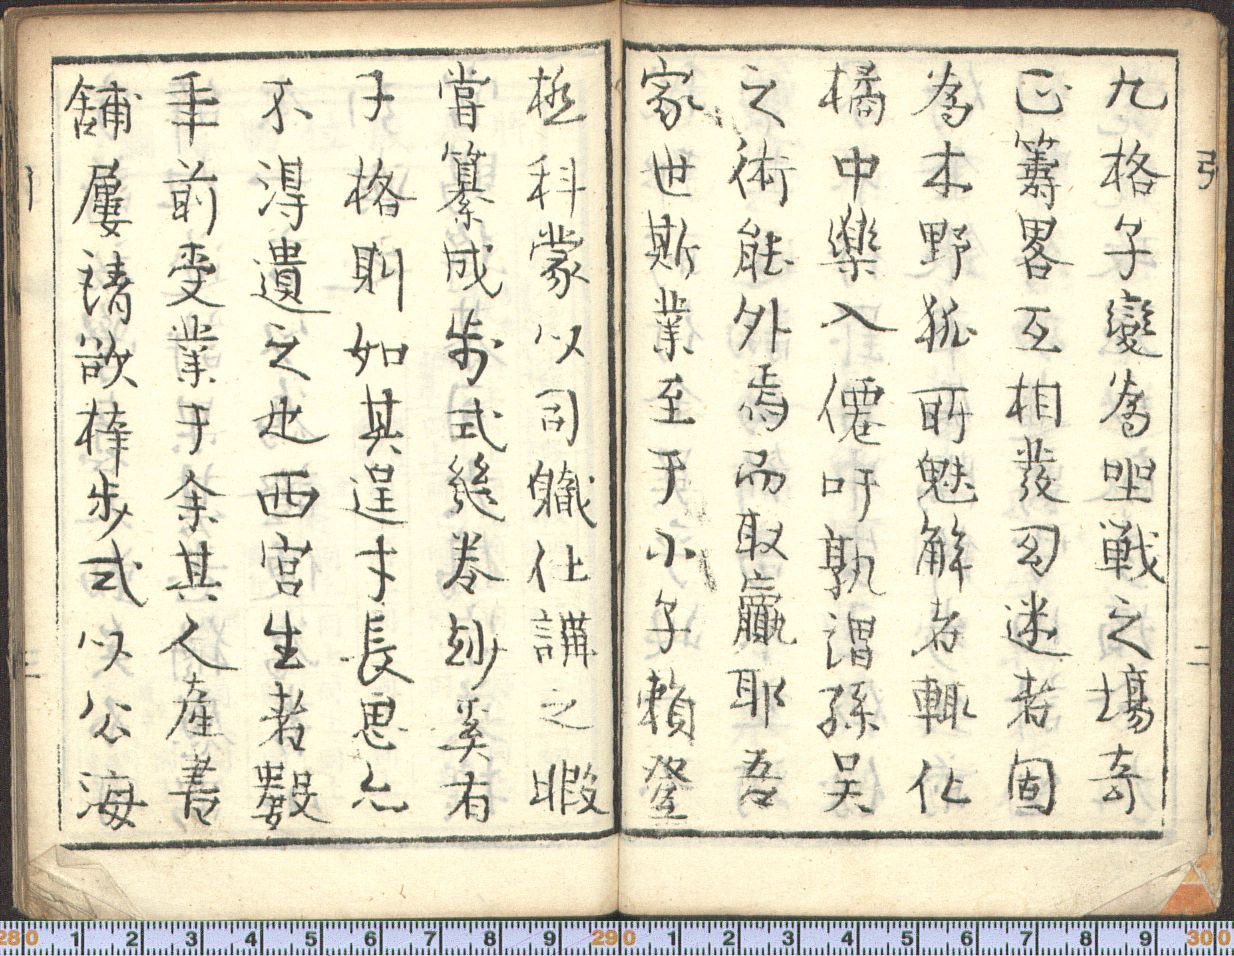 九格子變為坐戦之場奇
正籌畧互相發勿迷者固
為木野狐所魅解者輙化
橘中樂入僊吁孰謂孫吴
之術能外焉而取贏耶吾
家世斯業至于小子賴登
極科蒙以司職仕講之暇
嘗纂成歩式幾巻玅奚有
于格則如其逞才長思亦
不淂遺之也西宮生者數
年前受業于余其人産書
舗屢請欲梓歩式以公海
引
二